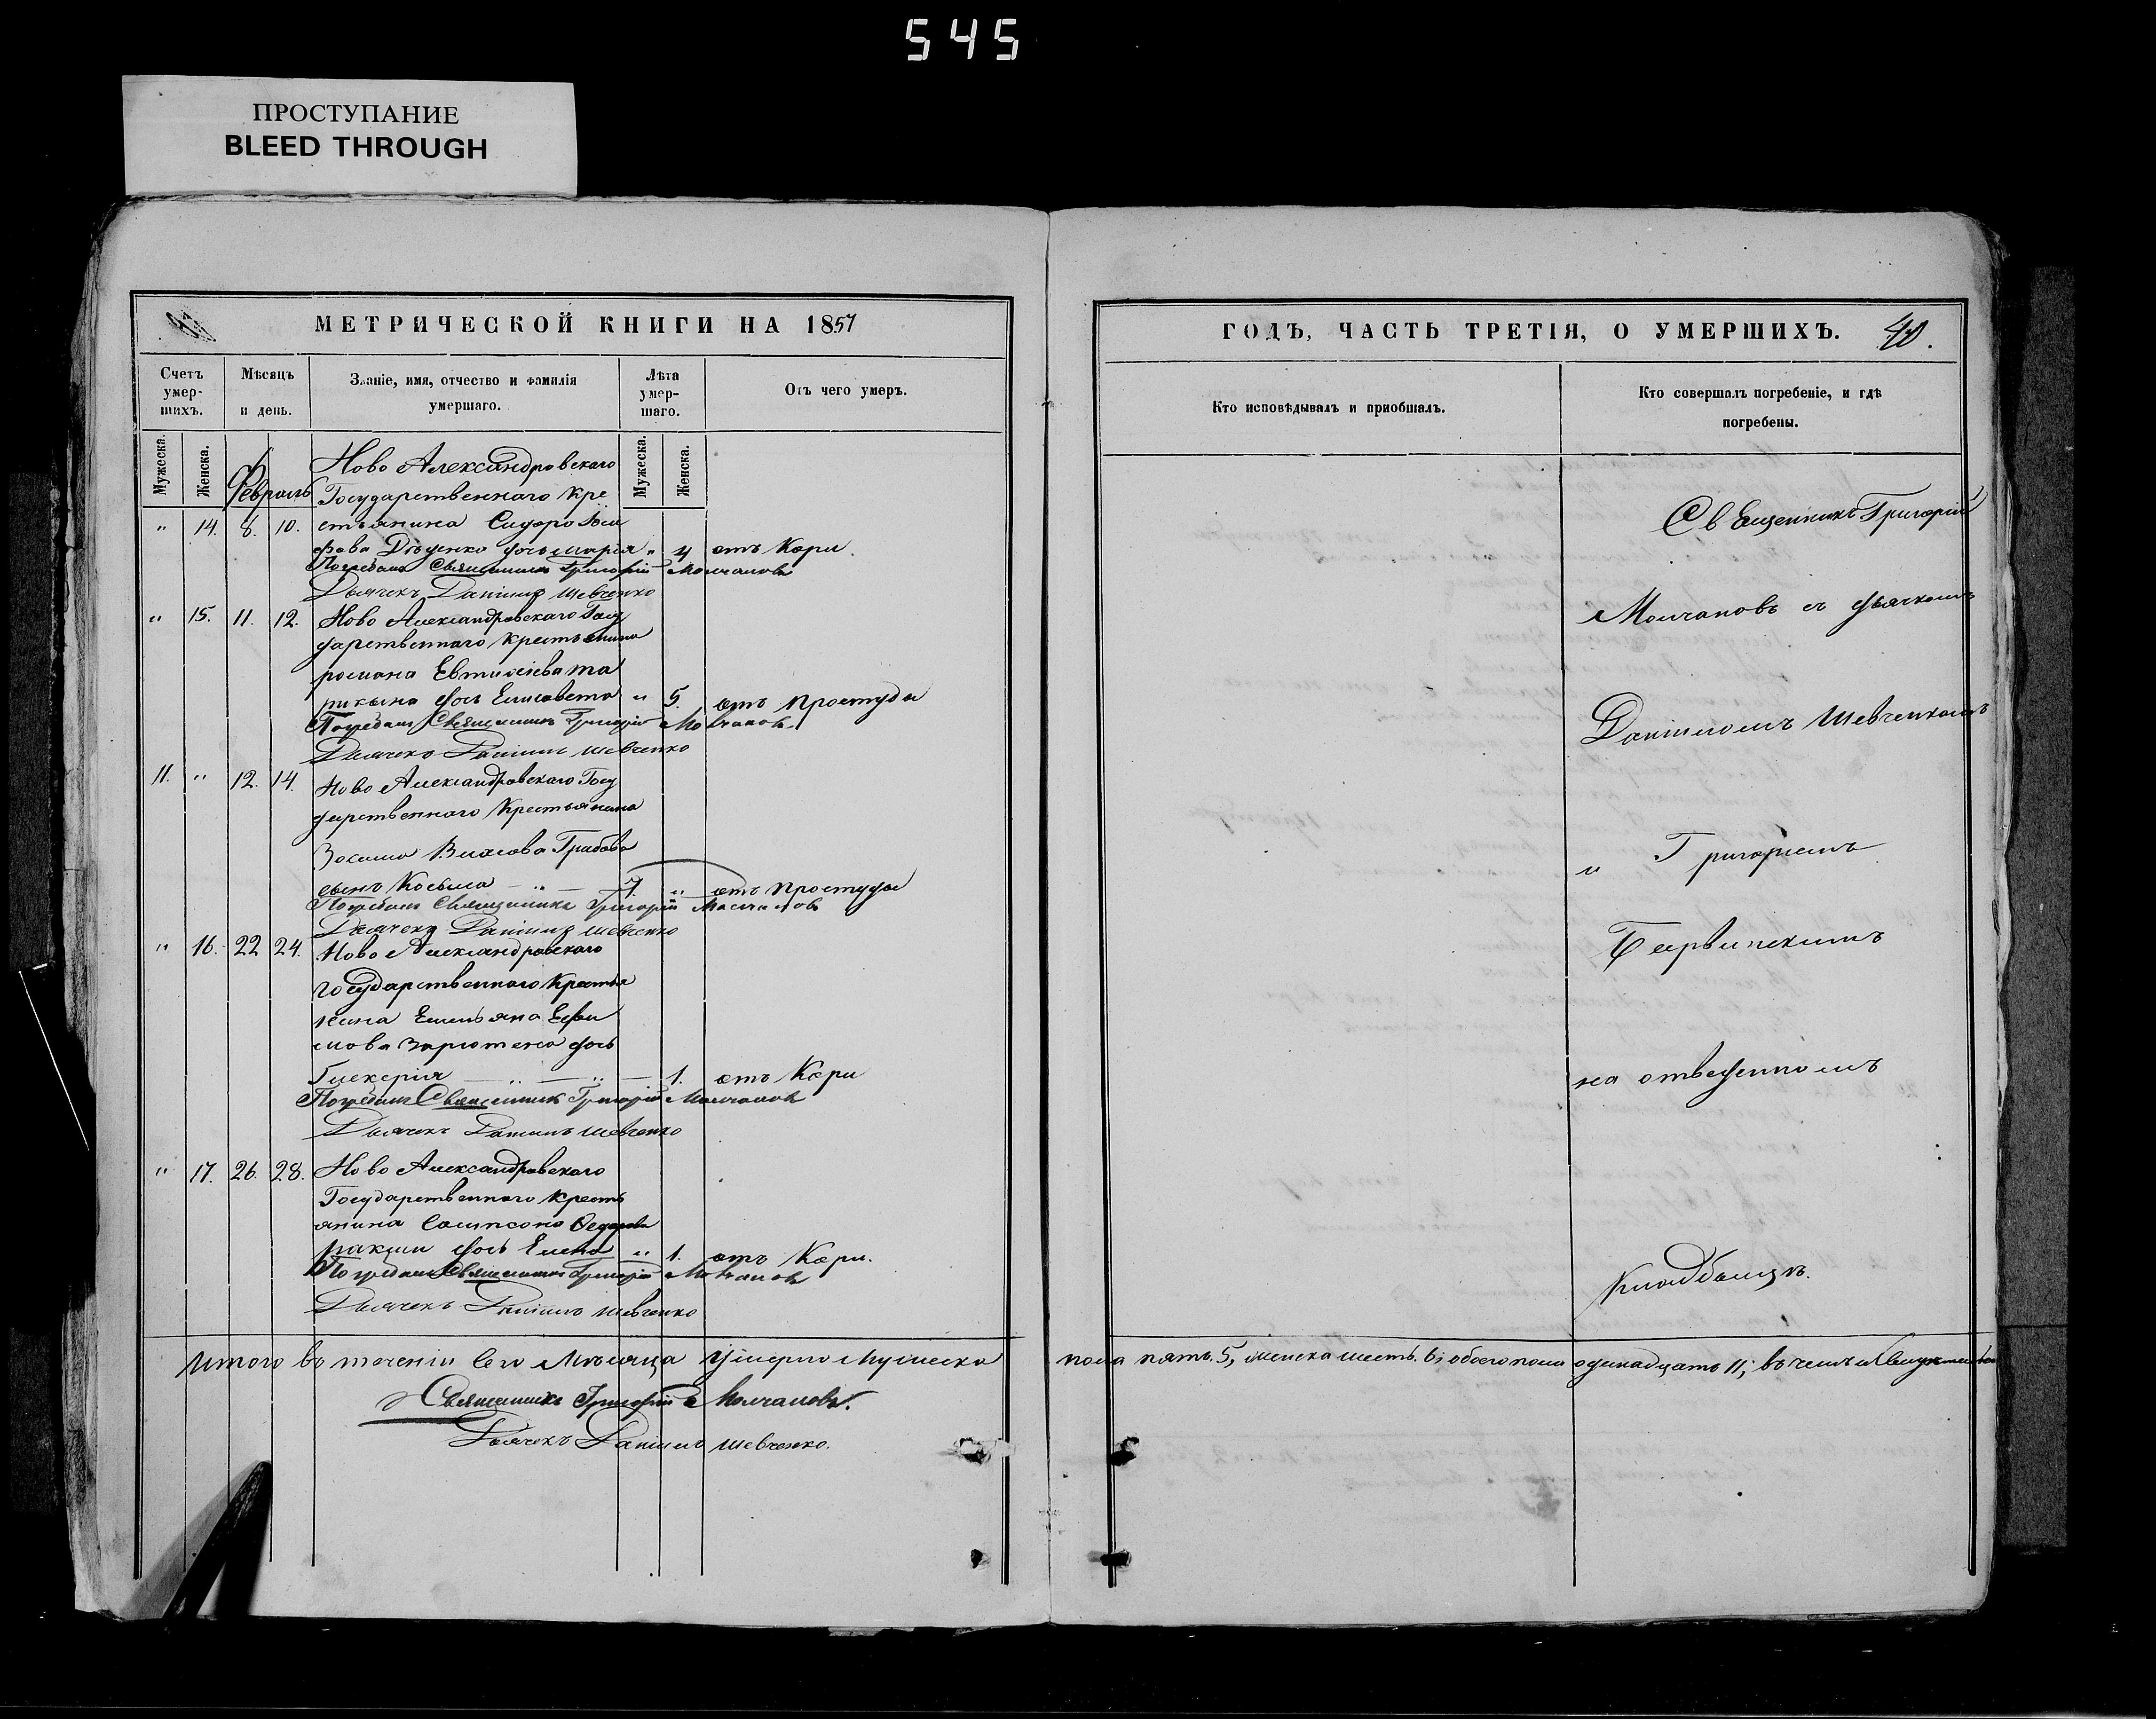 545
ПРОСТУПАНИЕ
BLEED THROUGH
МЕТРИЧЕСКОЙ КНИГИ НА 1857
Счетъ умер-шихъ.
Мѣсяцъ и день.
Званіе, имя, отчество и фамилія умершаго.
Лѣта умер-шаго.
Отъ чего умеръ.
Мужеска.
Женска.
Мужеска.
Женска.
Февраль
Ново Александровскаго
Государственнаго Кре
" 14. 8. 10. стьянина Сидора
дочь Марія " 4 отъ Кори.
Погребали Священникъ Григорій Молчановъ
Дьячекъ Даніилъ Шевченко
" 15. 11. 12. Ново Александровскаго Госу
дарственнаго Крестьянина
романа Евтихіева та
рикына дочь Елисавета " 5. отъ Простуды
Погребали Священникъ Григорій Молчановъ
Дьячекъ Даніилъ Шевченко
11. " 12. 14. Ново Александровскаго Госу
дарственнаго Крестьянина
Власова Грибова
сынъ Косьма — " — 7. " отъ Простуды
Погребали Священникъ Григорій Молчановъ
Дьячекъ Даніилъ Шевченко
" 16. 22 24. Ново Александровскаго
Государственнаго Крестья
нина Емельяна Ефи
мова дочь
Гликерія — " — " — 1. отъ Кори
Погребали Священникъ Григорій Молчановъ
Дьячекъ Даніилъ Шевченко
" 17. 26. 28. Ново Александровскаго
Государственнаго Кресть
янина Сампсона Федорова
дочь Елена " 1. отъ Кори.
Погребали Священникъ Григорій Молчановъ
Дьячекъ Даніилъ Шевченко
Итого въ теченіи сего Мѣсяца Умерло Мужеска
Священникъ Григорій Молчановъ.
Дьячекъ Даніилъ Шевченко.
ГОДЪ, ЧАСТЬ ТРЕТІЯ, О УМЕРШИХЪ. 40.
Кто исповѣдывалъ и пріобщалъ.
Кто совершалъ погребеніе, и гдѣ погребены.
Священникъ Григорій
Молчановъ съ дьячкомъ
Даніиломъ Шевченкомъ
и Григоріемъ
на отведенномъ
Кладбищѣ.
пола пять. 5, женска шесть. 6, обоего пола одинадцать 11; въ чемъ и